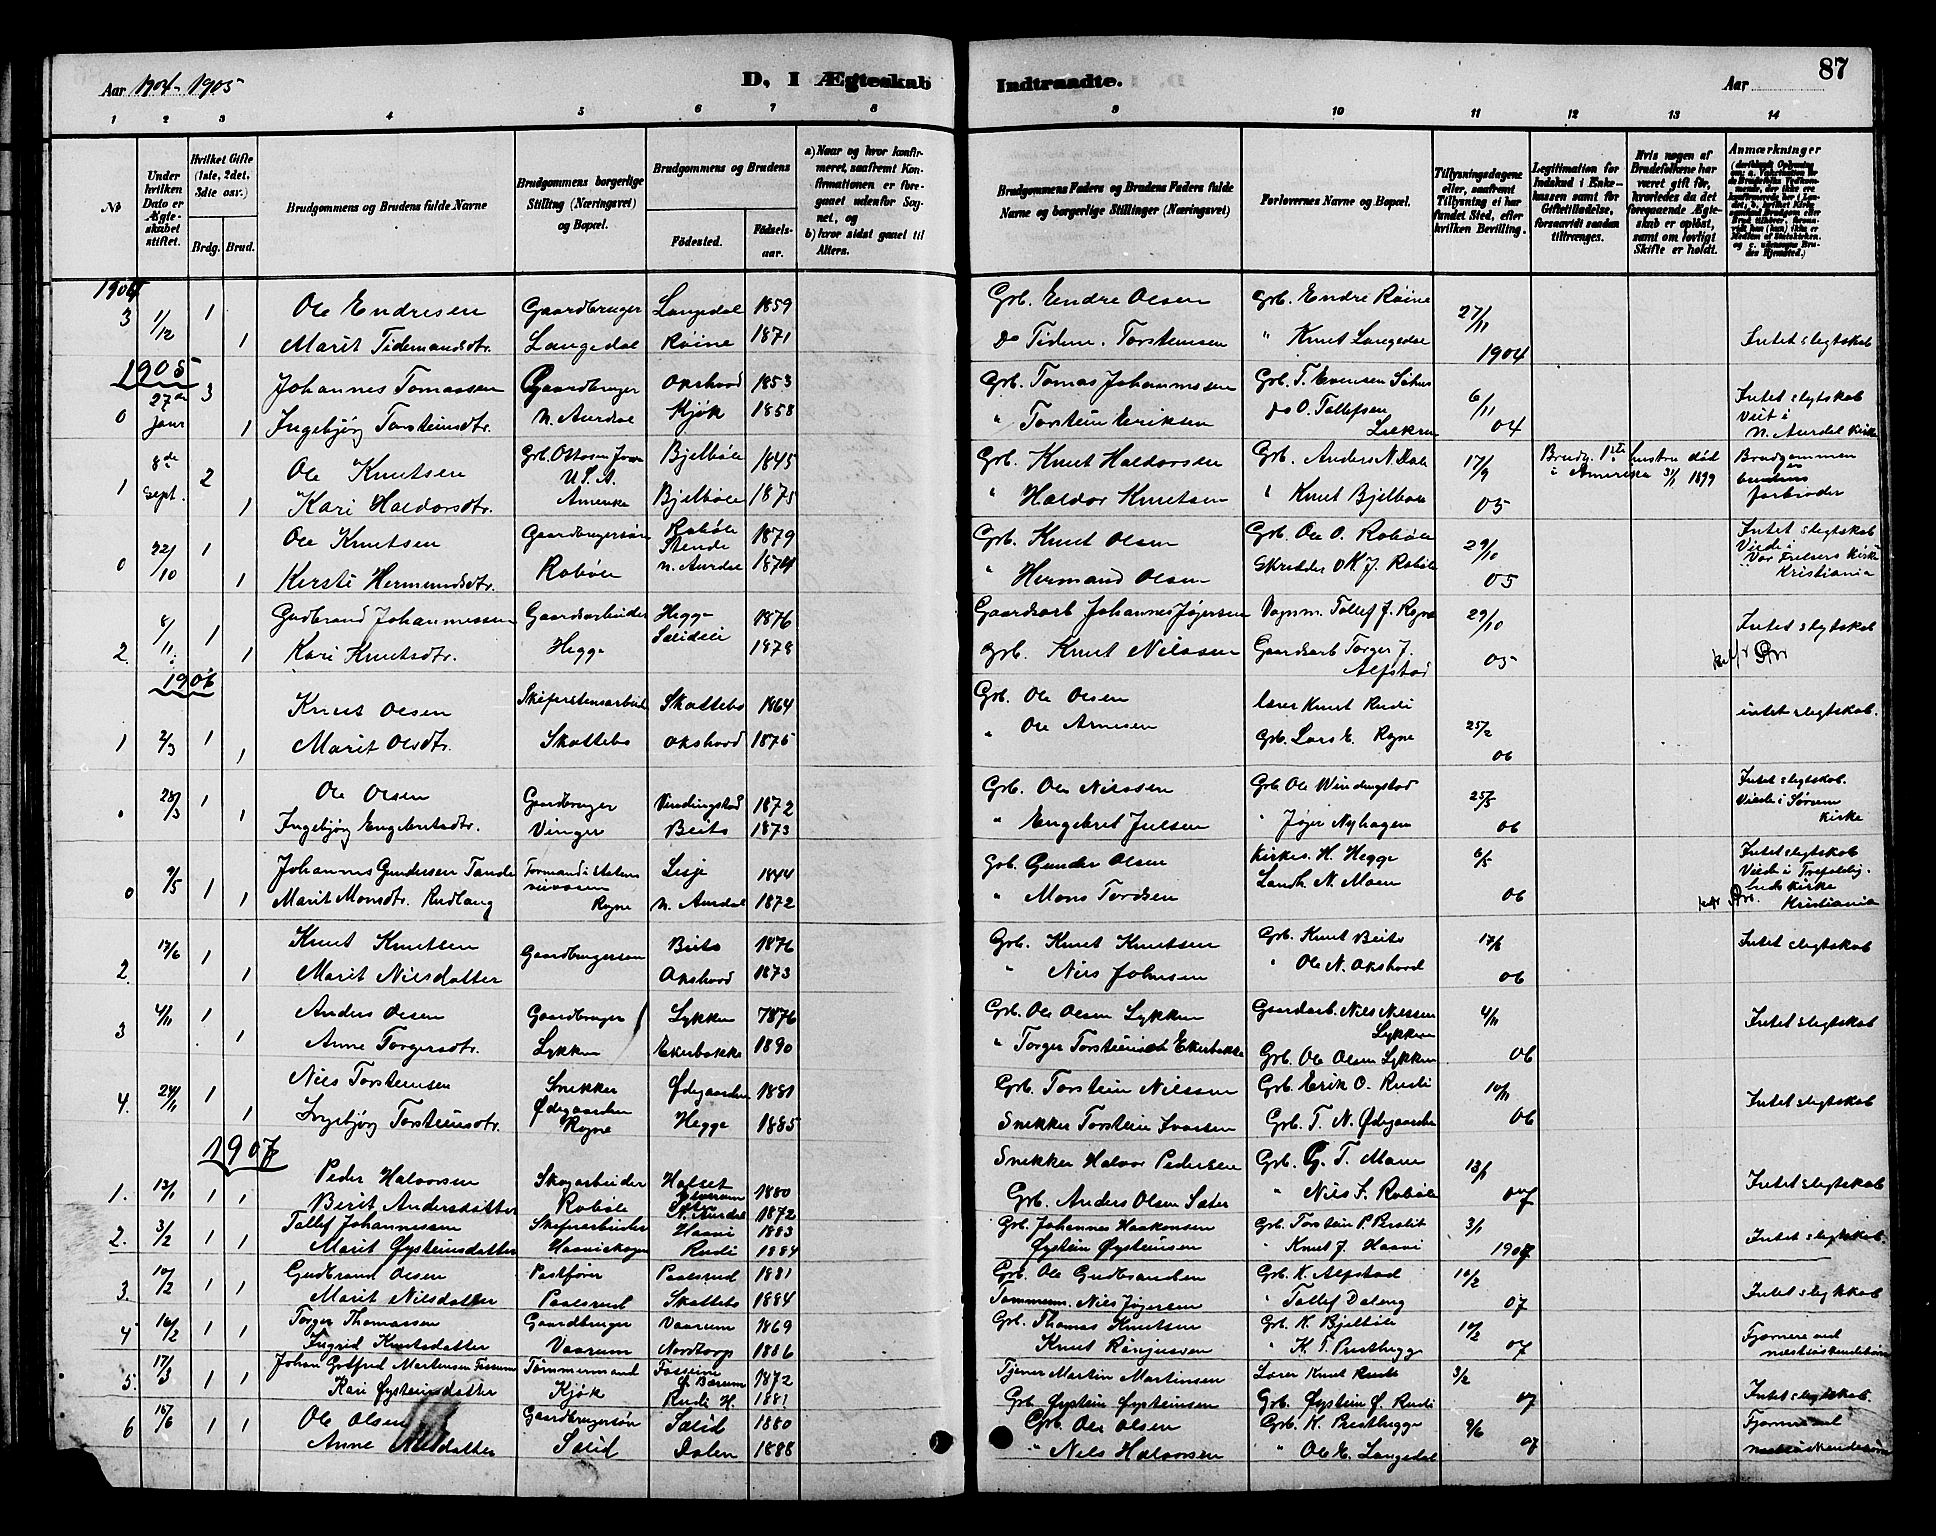 Aar 1904-1905
D, I Ægteskab
Indtraadte.
Aar
87
1 2 3 4 5 6 7 8 9 10 11 12 13 14
No
Under hvilken Dato er Ægteskabet stiftet.
Hvilket Gifte (1ste, 2det, 3die osv.)
Brdg. Brud.
Brudgommens og Brudens fulde Navne
Brudgommens borgerlige Stilling (Næringsvei) og Bopæl.
Brudgommens og Brudens
Fødested.
Fødselsaar.
a) Naar og hvor konfirmeret, saafremt Konfirmationen er foregaaet udenfor Sognet, og
b) hvor sidst gaaet til Alters.
Brudgommens Faders og Brudens Faders fulde Navne og borgerlige Stillinger (Næringsvei)
Forlovernes Navne og Bopæl.
Tillysningsdagene eller, saafremt Tillysning ei har fundet Sted, efter hvilken Bevilling.
Legitimation for Indskud i Enkekassen samt for Giftetilladelse, forsaavidt saadan tiltrænges.
Hvis nogen af Brudefolkene har været gift før, hvorledes da det foregaaende Ægteskab er opløst, samt om lovligt Skifte er holdt.
Anmærkninger
1904
3 1/12 1 Ole Endresen Gaardbruger Langedal 1859 Grb. Endre Olsen Grb. Endre Røine 27/11
1 Marit Tidemandsdtr. Langedal Røine 1871 Do Tidem. Torstensen " Knut Langedal 1904 Intet slegtskab
1905
0 27de Janr 3 Johannes Tomassen Gaardbruger Okshovd 1853 Grb. Tomas Johannessen Grb. T. Evensen 6/11 Intet slegtskab
1 Ingebjørg Torsteinsdtr. N. Aurdal Kjøk 1858 " Torstein Eriksen do O. Tollefsen 04 Viet i N. Aurdal Kirke
1 8de Sept. 2 Ole Knutsen Grb. U.S.A. Bjelbøle 1845 Grb. Knut Haldorsen Grb. Anders N. Dale 17/9 Brudg. 1ste hustru død i Amerika 31/1 1899 Brudgommen er brudens farbroder
1 Kari Haldorsdtr. Amerika Bjelbøle 1875 " Haldor Knutsen " Knut Bjelbøle 05
0 22/10 1 Ole Knutsen Gaardbrugersøn Robøle Stende 1879 Grb. Knut Olsen Grb. Ole O. Robøle 29/10 Intet slegtskab. Viede i Vor Frelsers Kirke Kristiania
1 Kersti Hermundsdtr. Robøle N. Aurdal 1874 " Hermand Olsen Skredder O K J. Robøle 05
2. 8/11. 1 Gudbrand Johannessen Gaardsarbeider Hegge 1876 Gaardsarb Johannes Jøgersen Vognm. Tollef J. Rogne 29/10 Intet slegtskab
1 Kari Knutsdtr. Hegge 1878 Grb. Knut Nilssen Gaardsarb Torger J. Alfstad 05
1906
1 2/3 1 Knut Olsen Skiferstensarbeid Skattebo 1864 Grb. Ole Olsen lærer Knut Rudi 25/2 intet slegtskab.
1 Marit Olsdtr. Skattebo Okshovd 1875 " Ole Arnesen Grb. Lars E. Rogne 06
0 28/3 1 Ole Olsen Gaardbruger Vindingstad 1872 Grb. Ole Nilssen Grb Ole Windingstad 25/3 Intet slegtskab. Viede i Sørum Kirke
1 Ingebjørg Engebretsdtr. Vinger Beito 1873 " Engebret Julsen " Jøger Nyhagen 06
0 9/5 1 Johannes Gundersen Tande Formand i Statens veivæsen Lesje 1844 Grb. Gunder Olsen Kirkes. H. Hegge 6/5 Intet slegtskab Viede i Trefoldighedskirke Kristiania
1 Marit Monsdtr. Rudlang Rogne N. Aurdal 1872 " Mons Tordsen Landh. N. Moen 06
2. 17/6 1 Knut Knutsen Gaardbrugersøn Beito 1876 Grb. Knut Knutsen Grb. Knut Beito 17/6 Intet slegtskab
1 Marit Nilsdatter Okshovd 1873 " Nils Johnsen " Ole N. Okshovd 06
3 4/11 1 Anders Olsen Gaardbruger Lykken 1876 Grb. Ole Olsen Lykken Gaardarb. Nils Nilssen Lykken 4/11 Intet slegtskab
1 Anne Torgersdtr. Lykken Ekerbakke 1890 " Torger Torsteinsen Ekerbakke Grb. Ole Olsen Lykken 06
4. 24/11 1 Nils Torsteinsen Snekker Ødegaarden 1881 Grb. Torstein Nilssen Grb. Erik O. Rudi 10/11 Intet slegtskab
1 Ingebjørg Torsteinsdtr. Ødegaarden Rogne Hegge 1885 Snekker Torstein Ivarsen Grb. T. N. Ødegaarden 06
1907
1. 13/1 1 1 Peder Halvorsen Skogarbeider Halset Elverum 1880 Snekker Halvor Pedersen Grb. G. T. Moen 13/1 Intet slegtskab
Berit Andersdatter Robøle N. Aurdal 1872 Grb. Anders Olsen Sæter " Nils S. Robøle 07
2. 3/2 1 1 Tollef Johannessen Skiferarbeider Haavi 1883 Grb. Johannes Haakonsen Grb. Torstein P. 3/1 Intet slegtskab.
Marit Øysteinsdatter Haavihagen Rudi 1884 Øystein Øysteinsen " Knut J. Haavi 1907
3. 10/2 1 1 Gudbrand Olsen Postfører Paalsrud 1881 Grb. Ole Gudbrandsen Grb. K. Alfstad 10/2 Intet slegtskab
Marit Nilsdatter Paalsrud Skattebo 1884 Tømmerm. Nils Jøgersen " Tollef Daleng 07
4 16/2 1 1 Torger Thomassen Gaardbruger Vaarum 1869 Grb. Thomas Knutsen Grb. K. Bjelbøle 10/2 Fjernere end næstsøskendebørn
Ingrid Knutsdatter Vaarum Nordtorp 1886 Knut " K. T. Prestbygge 07
5. 17/3 1 1 Johan Gotfred Martinsen Tømmermand Bærum 1872 Tjener Martin Martinsen Lærer Knut Rudi 3/2
Kari Øysteinsdatter Kjøk Rudi H. 1881 Grb Øystein Øysteinsen Grb. Øystein Ø. Rudi 07 Intet slegtskab
6 16/6 1 1 Ole Olsen Gaardbrugersøn Sælid 1880 Grb. Ole Olsen Grb. K. Prestbygge 9/6 Fjernere end næstsøskendebørn
Anne Nilsdatter Sælid Dalen 1888 " Nils Halvorsen " Ole E. Langedal 07